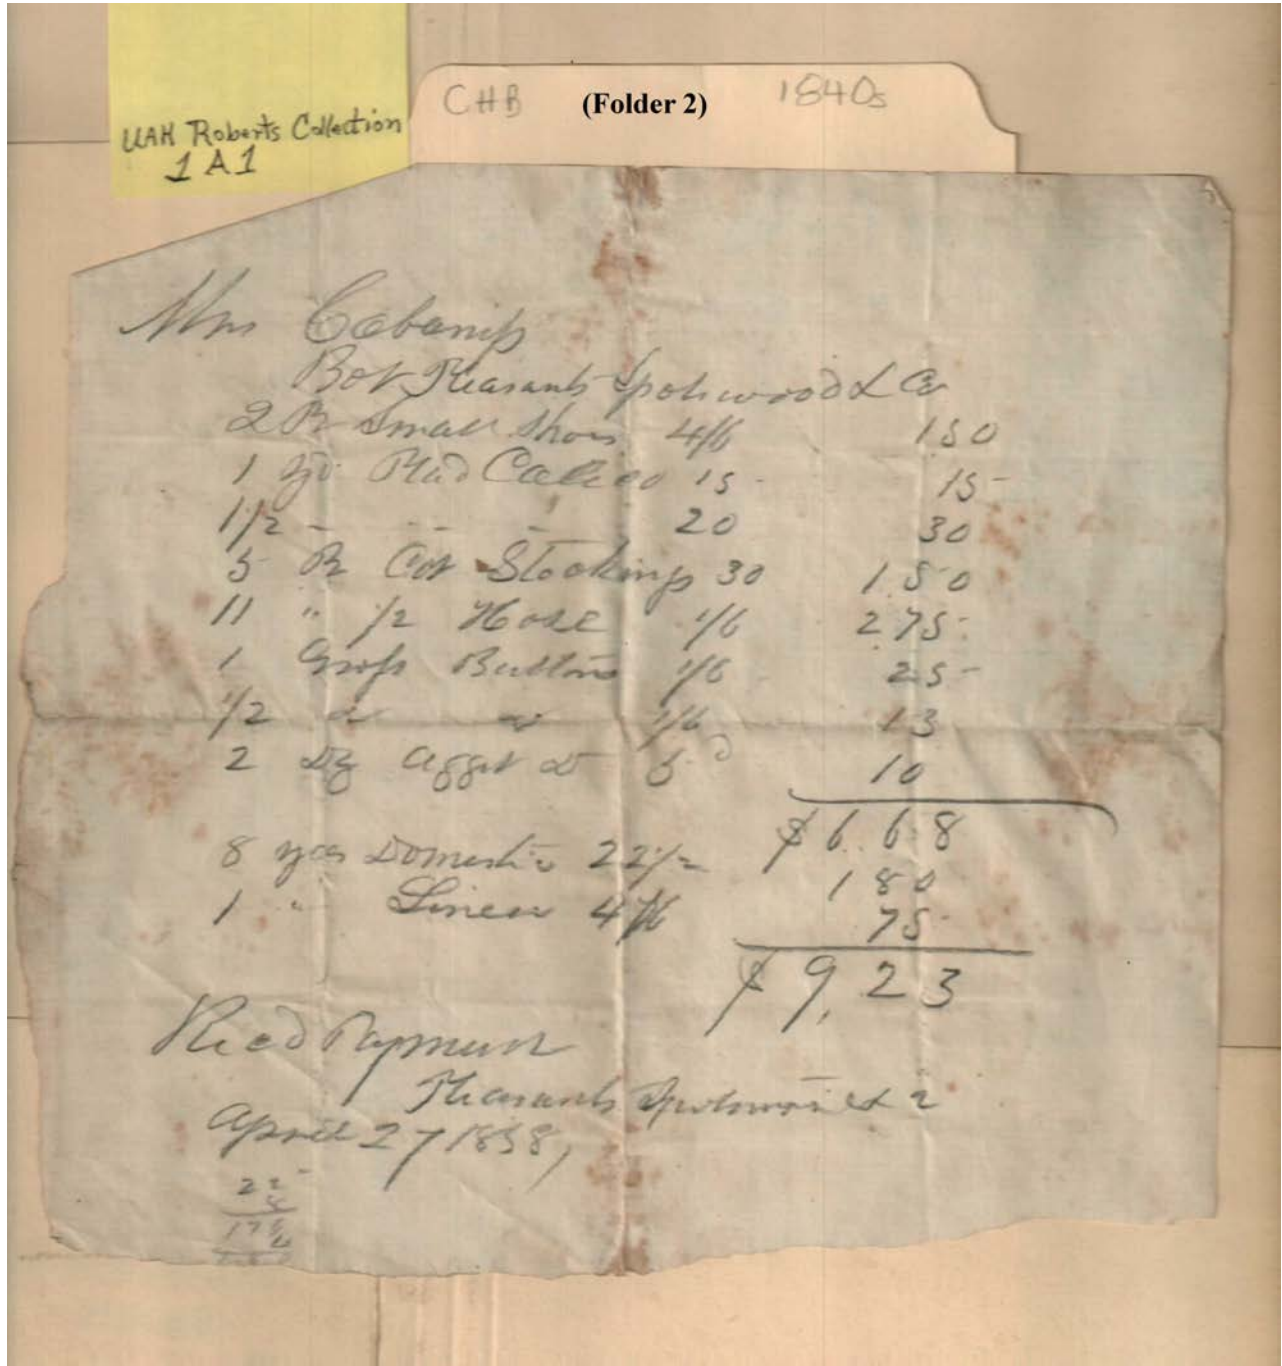 UAH Roberts Collection
1 A 1
CHB (Folder 2) 1840s
Mrs Cabaniss
Bot Pleasants Spotswood & Co
2 Pr Small Shoes 4/6 150
1 yd Plad Calico 15 - 15 -
1 1/2 - -- - 20 30
5 Pr Cot Stockings 30 1.50
11 " 1/2 Hose 1/6 2 75
1 Gross Buttons 1/6 25 -
1/2 do do 1/6 13
2 Dz Aggat do 5 10
$6.68
8 yds Domestic 22 1/2 180
1 " Linen 4/6 75
$9,23
Recd Payment
Pleasants Spotswood &
April 27 1838,
22
8
176